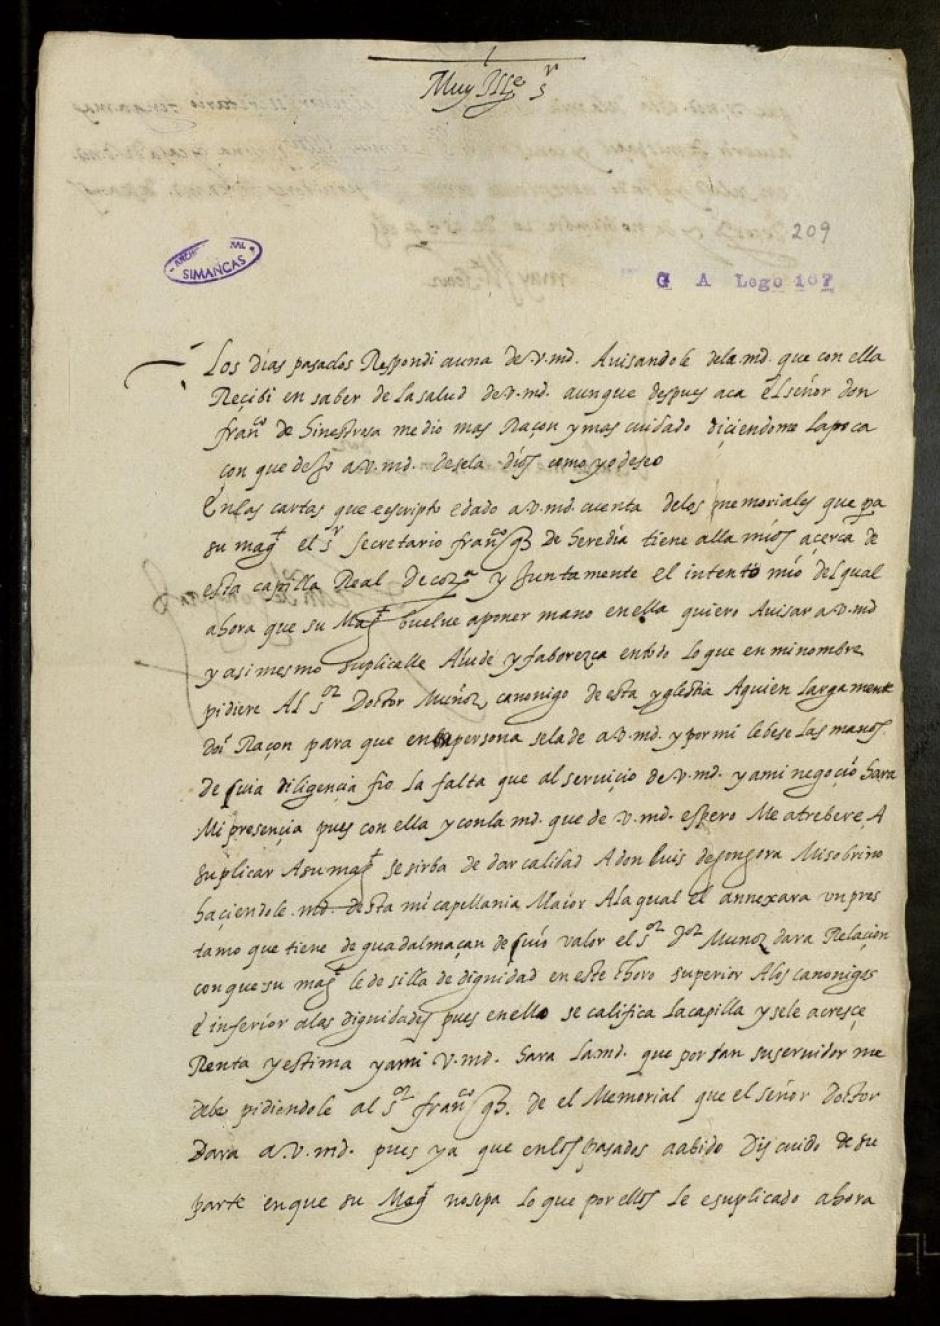 Muy Ille sr
209
SIMANCAS
G A Lego 167
Los dias pasados Respondi auna de v.md. Auisandole dela md. que con ella
Reçibi en saber de la salud de v.md. aunque despues aca el señor don
franco de hinestrosa me dio mas Raçon y mas cuidado diçiendome la poca
con que a v.md. desela dios como yo deseo
En las cartas que e escripto e dado a v.md. cuenta delos memoriales que pa
su magt el sr Secretario franco gz de heredia tiene alla mios açerca de
esta capilla Real de y Juntamente el intento mio del qual
ahora que su Magt buelue aponer mano en ella quiero Auisar a v.md
y asi mesmo suplicalle Aiude y faborezca en todo lo que en mi nombre
pidiere Al sor Doctor Muñoz canonigo de esta yglesia Aquien largamente
doi Raçon para que en persona se la de a v.md. y por mi le bese las manos
de cuia diligençia fio la falta que al seruiçio de v.md. y ami negoçio hara
Mi presençia pues con ella y con la md. que de v.md. espero Me atrebere A
suplicar Asu magt se sirba de dar calidad A don luis de gongora Mi sobrino
haçiendole md. desta mi capellania Maior Ala qual el annexara vn pres
tamo que tiene de guadalmaçan de cuio valor el sor dor Muñoz dara Relaçion
con que su magt le de silla de dignidad en este choro superior Alos canonigos
e inferior alas dignidades pues en ello se califica la capilla y se le acresçe
Renta y estima y ami v.md. hara la md. que por tan su seruidor me
debe pidiendole al sor franco gz. de el Memorial que el señor doctor
Dara a v.md. pues ya que en los pasados a abido Discuido de su
parte en que su Magt no sepa lo que por ellos le e suplicado ahora